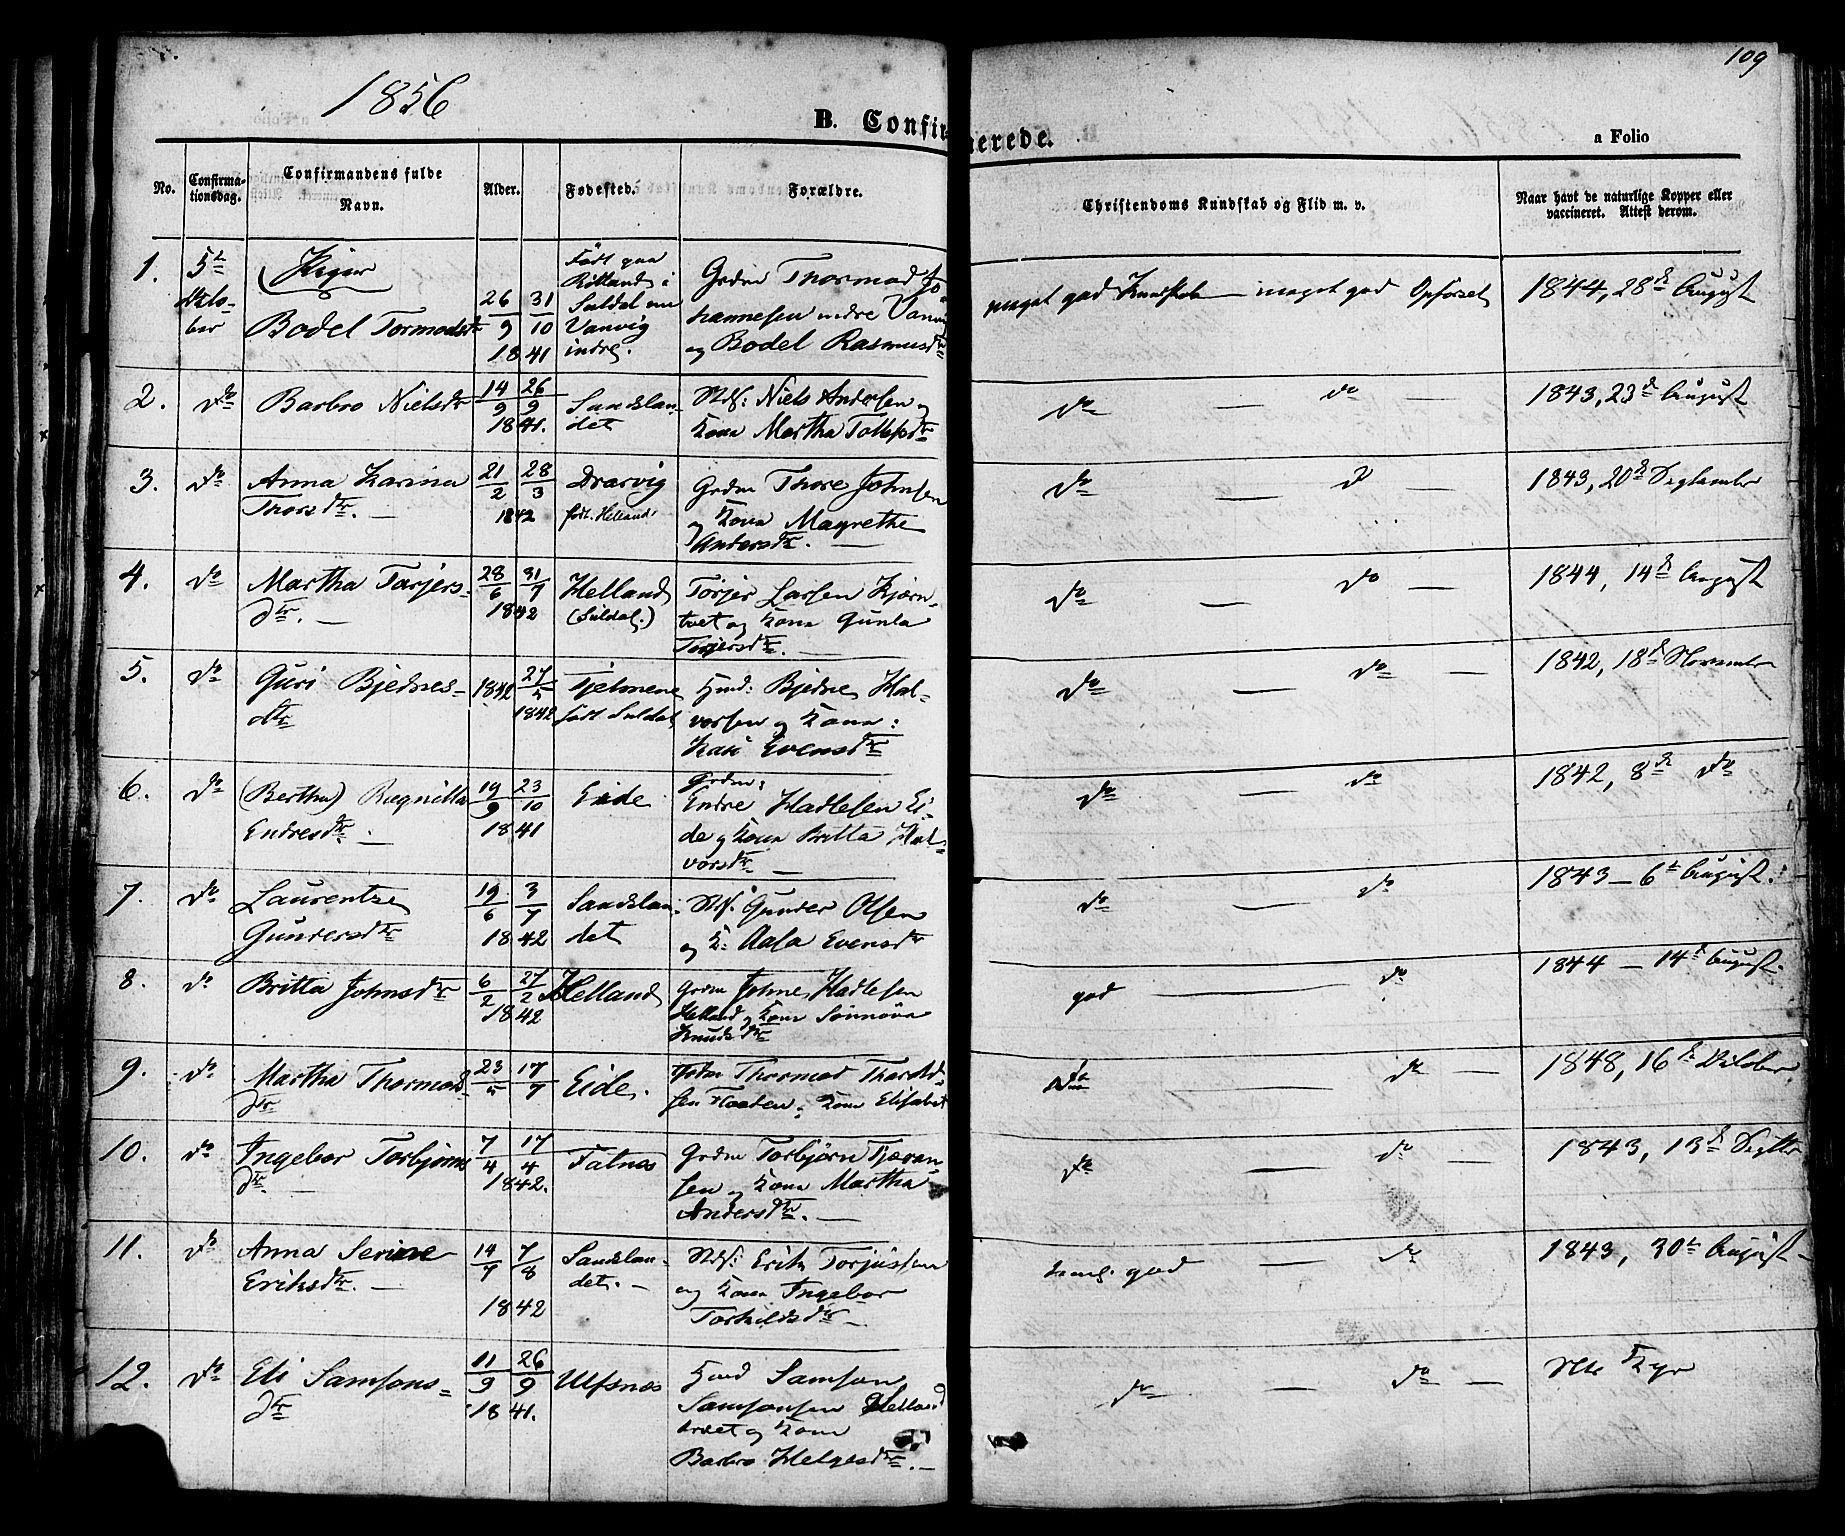 109
1856
B. Confirmerede.
a Folio
No.
Confirma-
tionsdag.
Confirmandens fulde
Navn.
Alder.
Fødested.
Forældre.
Christendoms Kundskab og Flid m. v.
Naar havt de naturlige Kopper eller
vaccineret. Attest derom.
1.
5te
Octo-
ber
Piger
Bodel Tormodsdtr
26 31
9 10
1841
Født paa
i
Suldal nu
Vanvig
indre.
Grdm Thormod Jo-
hannesen indre Vanvig
og Bodel Rasmusdtr
meget god Kundskab — meget god Opførsel
1844, 28de August
2.
do
Barbro Nielsdtr
14 26
9 9
1841.
Sandslan-
det
Niels Andersen og
Kone Martha Tollefsdtr
do — do —
1843, 23de August
3.
do
Anna Karina
Thorsdtr. —
21 28
2 3
1842
Drarvig
født Helland
Grdm Thore Johnsen
og Kone Magrethe
Andersdtr. —
do — do —
1843, 20de September
4.
do
Martha Tarjers-
dtr. —
28 31
6 7
1842
Helland
(Suldal.)
Torjer Larsen Kjærn-
tvet og Kone Gunla
Torjersdtr. —
do — do —
1844, 14de August
5.
do
Guri Bjednes-
dtr
1842
27
5
1842
Tjelmene
født Suldal
Huusmd: Bjedne Hal-
vorsen og Kone:
Kari Evensdtr
do — do —
1842, 18de November
6.
do
(Bertha) Ragnilla
Endresdtr. —
19 23
9 10
1841
Eide
Grdm:
Endre Hadlesen Ei-
de og Kone Britta Hal-
vorsdtr —
do — do —
1842, 8de do
7.
do
Laurentze
Gundersdtr
19 3
6 7
1842
Sandslan-
det
Gunder Olsen
og K: Aasa Evensdtr
do — do
1843 — 6te August.
8.
do
Britta Johnsdtr
6 27
2 2
1842
Helland
Grdm Johne Hadlesen
Helland og Kone Sønnøva
Knudsdtr
god — do
1844 — 14de August.
9.
do
Martha Thormods-
dtr
23 17
5 7
Eide.
Thormod Tharald-
sen Kone Elisabet
do — do —
1848, 16de October
10.
do
Ingebor Torbjørns
dtr. —
7 17
4 4
1842.
Fatnæs
Grdm Torbjørn Tjeran-
sen og Kone Martha
Andersdtr. —
do — do —
1843, 13de Septbr
11.
do
Anna Serine
Eriksdtr. —
14 7
7 8
1842
Sandslan-
det. —
Erik Torjussen
og Kone Ingebor
Torkildsdtr —
teml. god — do
1843, 30te August —
12.
do
Eli Samsons-
dtr
11 26
9 9
1841.
Ulfsnæs
Huusmd Samson
Samsonsen
og Kone
Barbro Helgesdtr. —
do — do —